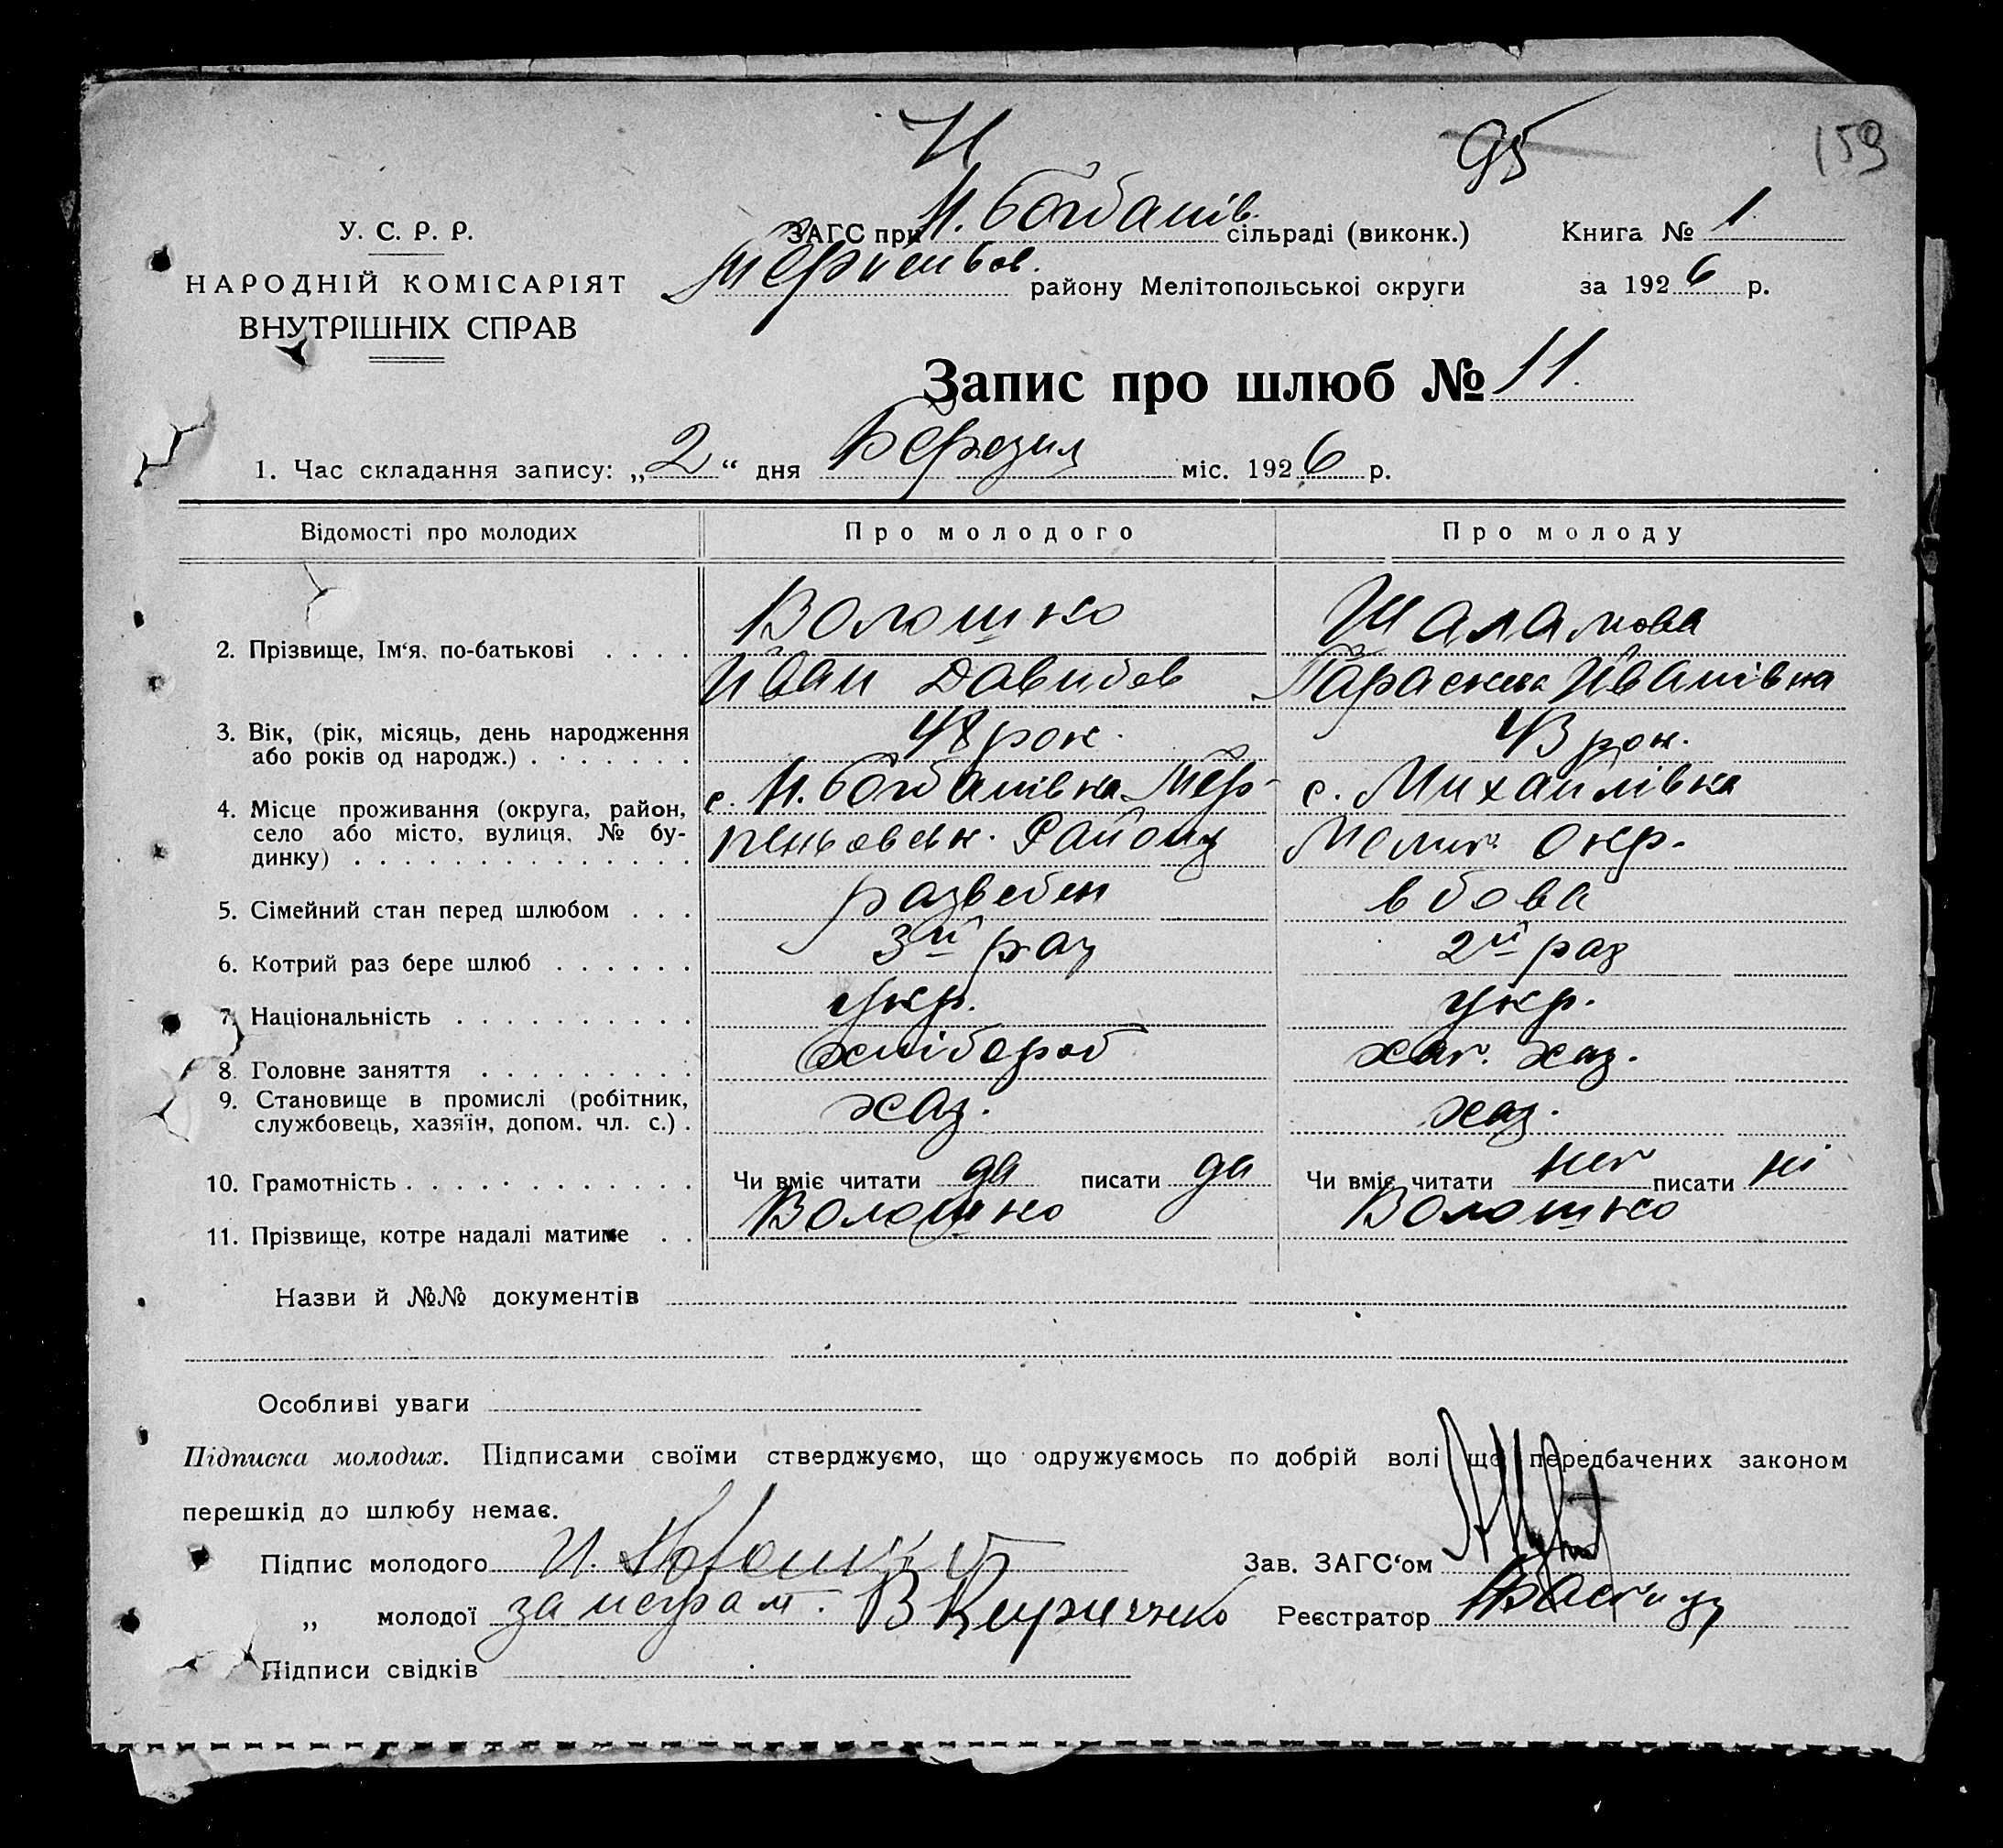 Н
95
159
У. С. Р. Р.
НАРОДНІЙ КОМІСАРІЯТ
ВНУТРІШНІХ СПРАВ
ЗАГС при Н. Богданів. сільраді (виконк.)
Терпеньов. району Мелітопольської округи
Книга № 1.
за 1926 р.
Запис про шлюб № 11.
1. Час складання запису: „2“ дня Березня міс. 1926 р.
Відомості про молодих
Про молодого
Про молоду
2. Прізвище, Ім‘я, по-батькові . . . .
Волошко
Иван Давидов
Шаламова
Параскева Иванівна
3. Вік, (рік, місяць, день народження
або років од народж.) . . . . . . .
48 рок.
43 рок.
4. Місце проживання (округа, район,
село або місто, вулиця, № бу-
динку) . . . . . . . . . . . . . . .
с. Н. Богданівка Тер-
пеньовськ. Району
с. Михайлівка
Мелит. Окр.
5. Сімейний стан перед шлюбом . . .
разведен
вдова
6. Котрий раз бере шлюб . . . . . .
3й раз
2й раз
7. Національність . . . . . . . . . .
укр.
укр.
8. Головне заняття . . . . . . . . .
хлібороб
хат. хаз.
9. Становище в промислі (робітник,
службовець, хазяїн, допом. чл. с.) .
хаз.
хаз.
10. Грамотність . . . . . . . . . . . .
Чи вміє читати да писати да
Чи вміє читати нет писати ні
11. Прізвище, котре надалі матиме . .
Волошко
Волошко
Назви й №№ документів
Особливі уваги
Підписка молодих. Підписами своїми стверджуємо, що одружуємось по добрій волі що передбачених законом
перешкід до шлюбу немає.
Підпис молодого И.
Зав. ЗАГС‘ом
„ молодої за неграм. В Кириченко
Реєстратор
Підписи свідків